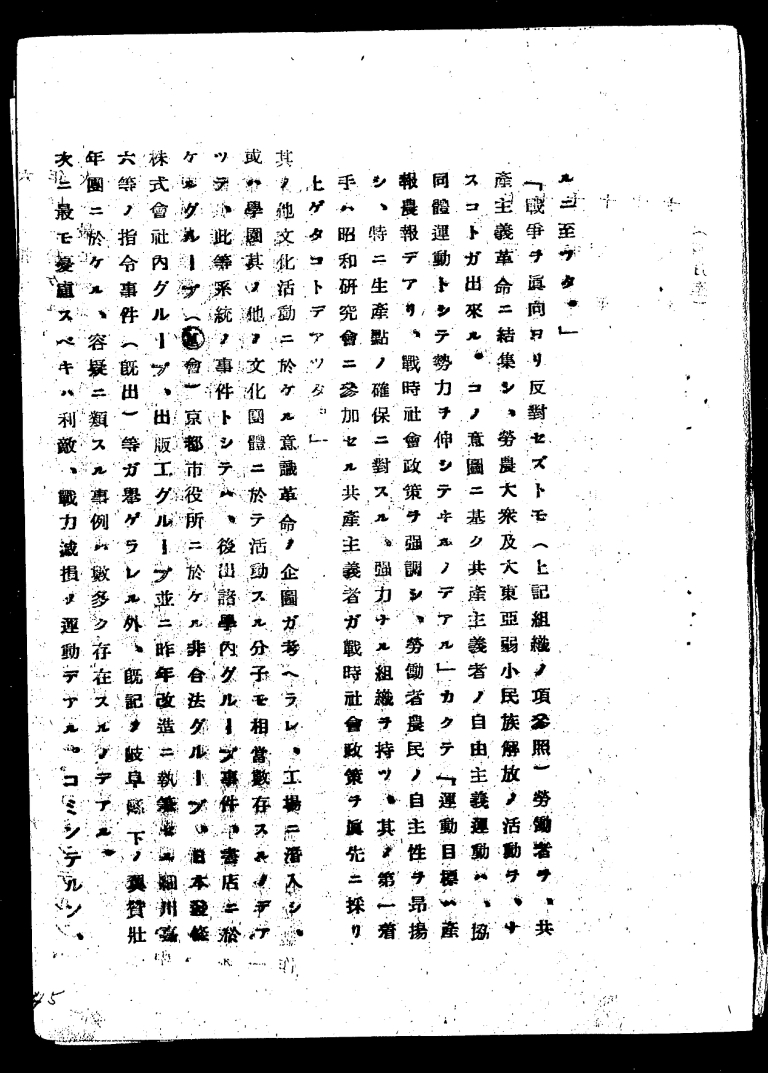 ルニ至ツタ。」
「戰爭ヲ眞向ヨリ反對セズトモ(上記組織ノ項參照)勞働者ヲ、共
產主義革命ニ結集シ、勞農大衆及大東亞弱小民族解放ノ活動ヲ、ナ
スコトガ出來ル。コノ意圖ニ基ク共產主義者ノ自由主義運動ハ、協
同體運動トシテ勢力ヲ伸シテヰルノデアル」カクテ「運動目標ハ產
報農報デアリ、戰時社會政策ヲ强調シ、勞働者農民ノ自主性ヲ昂揚
シ、特ニ生產點ノ確保ニ對スル、强力ナル組織ヲ持ツ、其ノ第一着
手ハ昭和硏究會ニ參加セル共產主義者ガ戰時社會政策ヲ眞先ニ採リ
上ゲタコトデアツタ。」
其ノ他文化活動ニ於ケル意識革命ノ企圖ガ考ヘラレ、工場ニ潛入シ、
或ハ學園其ノ他ノ文化團體ニ於テ活動スル分子モ相當數存スルノデア
ツテ、此等系統ノ事件トシテハ、後出諸學內グループ事件、書店ニ於
ケルグループ(會)京都市役所ニ於ケル非合法グループ、日本發條
株式會社內グループ、出版工グループ並ニ昨年改造ニ執筆セル細川嘉
六等ノ指令事件(旣出)等ガ擧ゲラレル外、旣記ノ岐阜縣下ノ翼贊壯
年團ニ於ケル、容疑ニ類スル事例ハ數多ク存在スルノデアル。
次ニ最モ憂慮スベキハ利敵、戰力減損ノ運動デアル。コミンテルン、
45